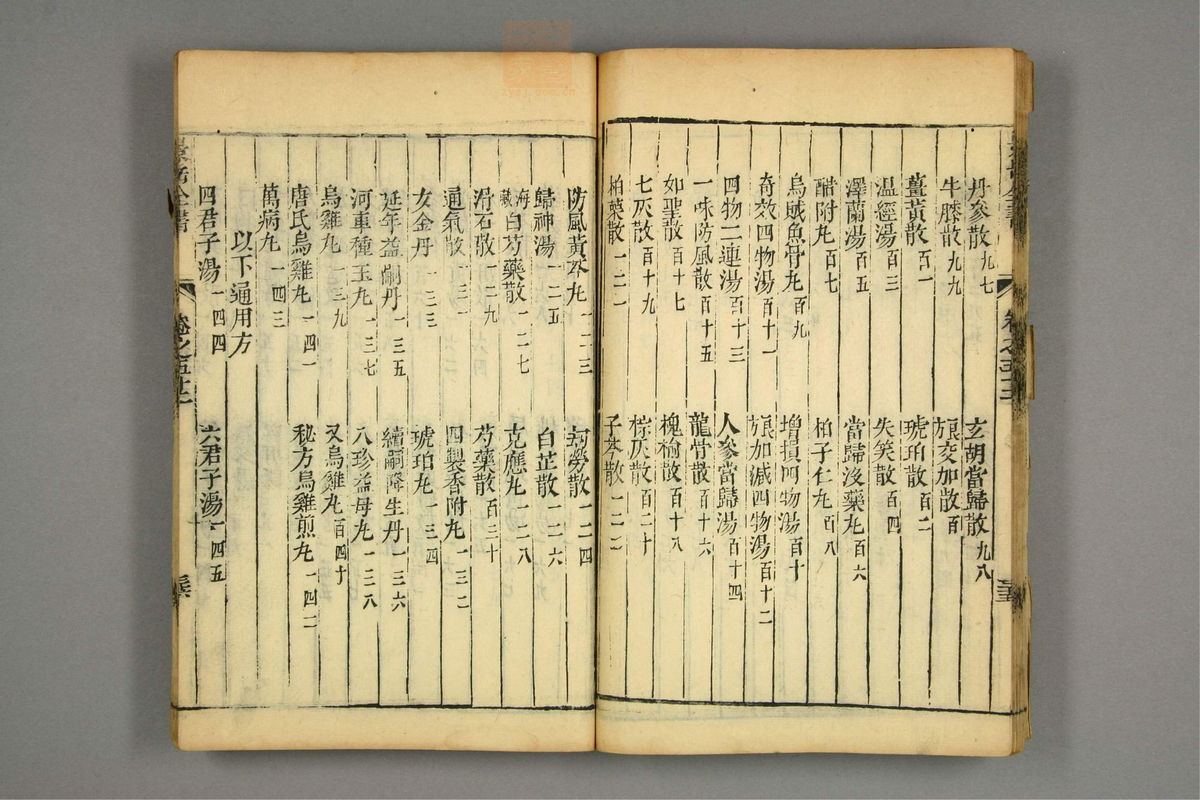 丹參散九七 玄胡當歸散九八
牛膝散九九 良方交加散百
薑黃散百一 琥珀散百二
温經湯百三 失笑散百四
澤蘭湯百五 當歸沒藥丸百六
醋附丸百七 柏子仁丸百八
烏賊魚骨丸百九 增損四物湯百十
奇效四物湯百十一 良方加減四物湯百十二
四物二連湯百十三 人參當歸湯百十四
一味防風散百十五 龍骨散百十六
如聖散百十七 槐榆散百十八
七灰散百十九 棕灰散百二十
柏葉散一二一 子芩散一二二
防風黃芩丸一二三 芎藭散一二四
歸神湯一二五 白芷散一二六
海藏白芍藥散一二七 克應丸一二八
滑石散一二九 芍藥散百三十
通氣散一三一 四製香附丸一三二
女金丹一三三 琥珀丸一三四
延年益嗣丹一三五 續嗣降生丹一三六
河車種玉丸一三七 八珍益母丸一三八
烏雞丸一三九 又烏雞丸百四十
唐氏烏雞丸一四一 秘方烏雞煎丸一四二
萬病丸一四三
以下通用方
四君子湯一四四 六君子湯一四五
景岳全書